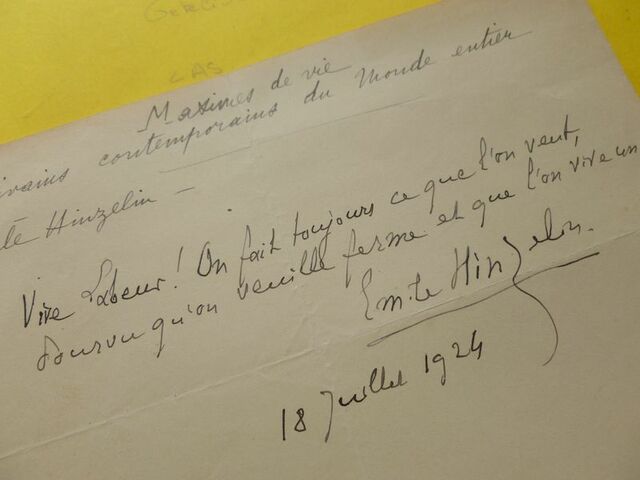 LAS
Maximes de vie
ivains contemporains du Monde entier
Hinzelin —
Vive Labeur ! On fait toujours ce que l'on veut,
Pourvu qu'on veuille ferme et que l'on vive un
Emile Hinzelin.
18 Juillet 1924